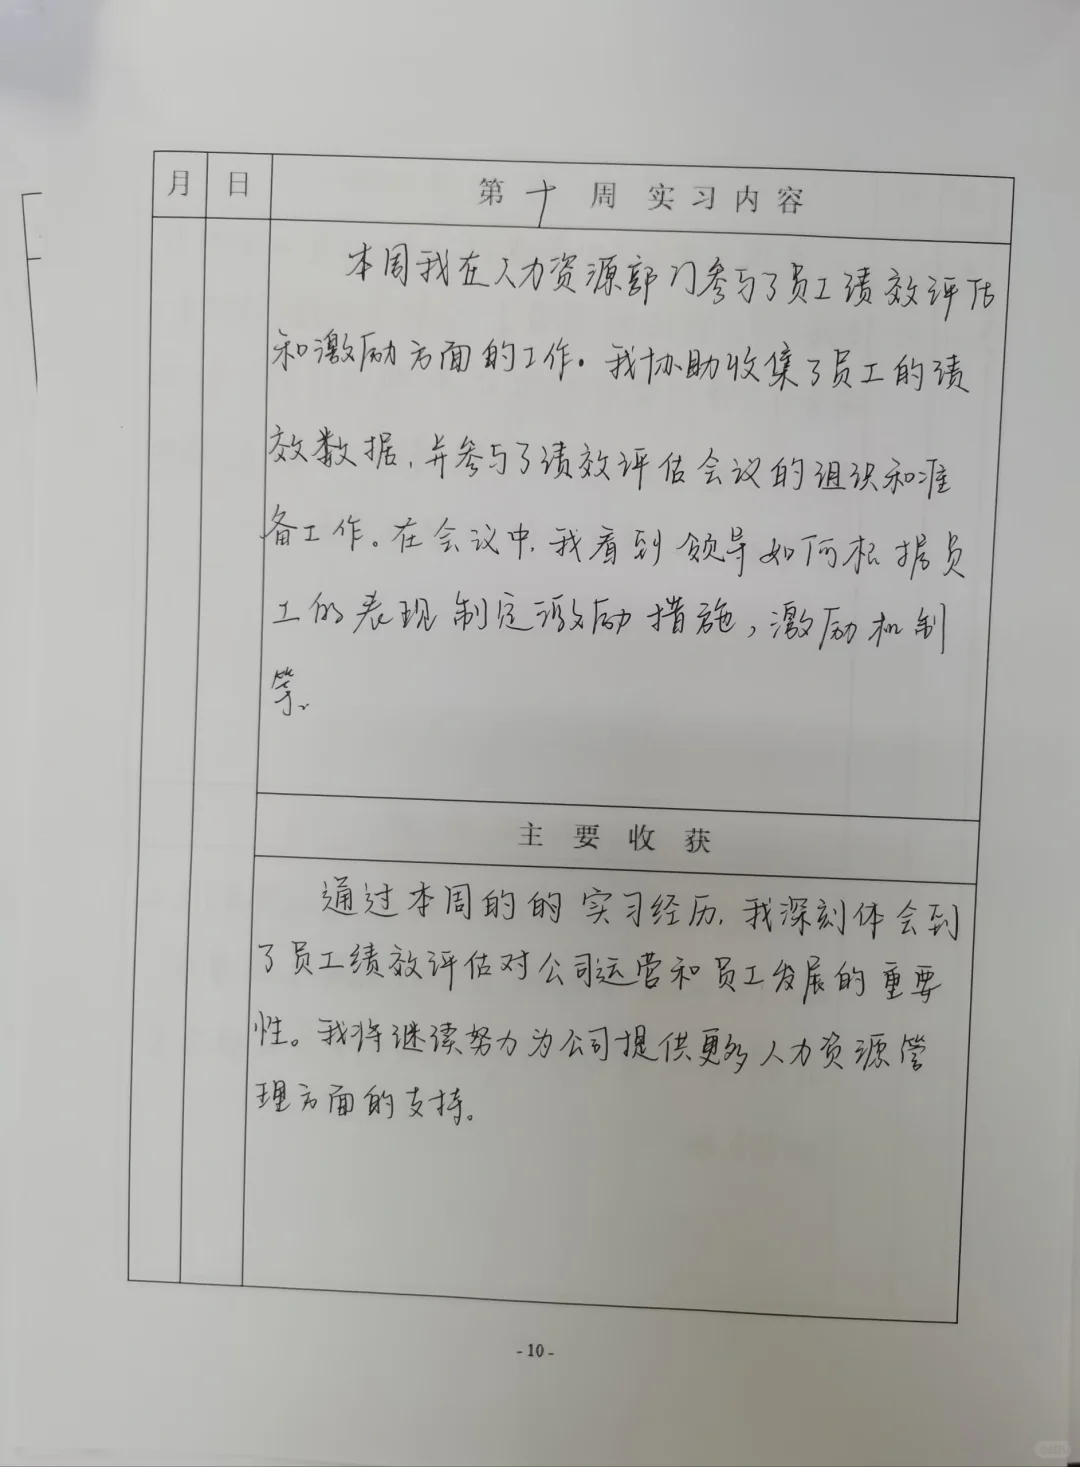 月 日 第 十 周 实 习 内 容
本周我在人力资源部门参与了员工绩效评估
和激励方面的工作。我协助收集了员工的绩
效数据,并参与了绩效评估会议的组织和准
备工作。在会议中,我看到领导如何根据员
工的表现制定激励措施,激励机制
等。
主 要 收 获
通过本周的的实习经历,我深刻体会到
了员工绩效评估对公司运营和员工发展的重要
性。我将继续努力为公司提供更多人力资源管
理方面的支持。
- 10 -